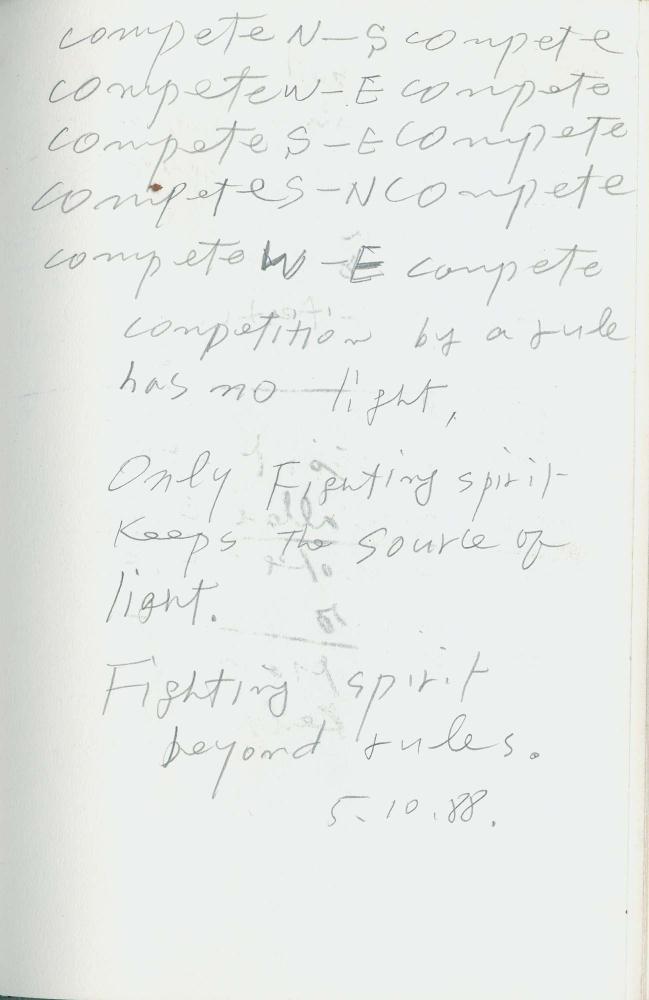 compete N-S compete
compete W-E compete
compete S-E compete
compete S-N compete
compete W-E compete
competition by a rule
has no light,
Only Fighting spirit
keeps the source of
light.
Fighting spirit
beyond rules.
5.10.88.